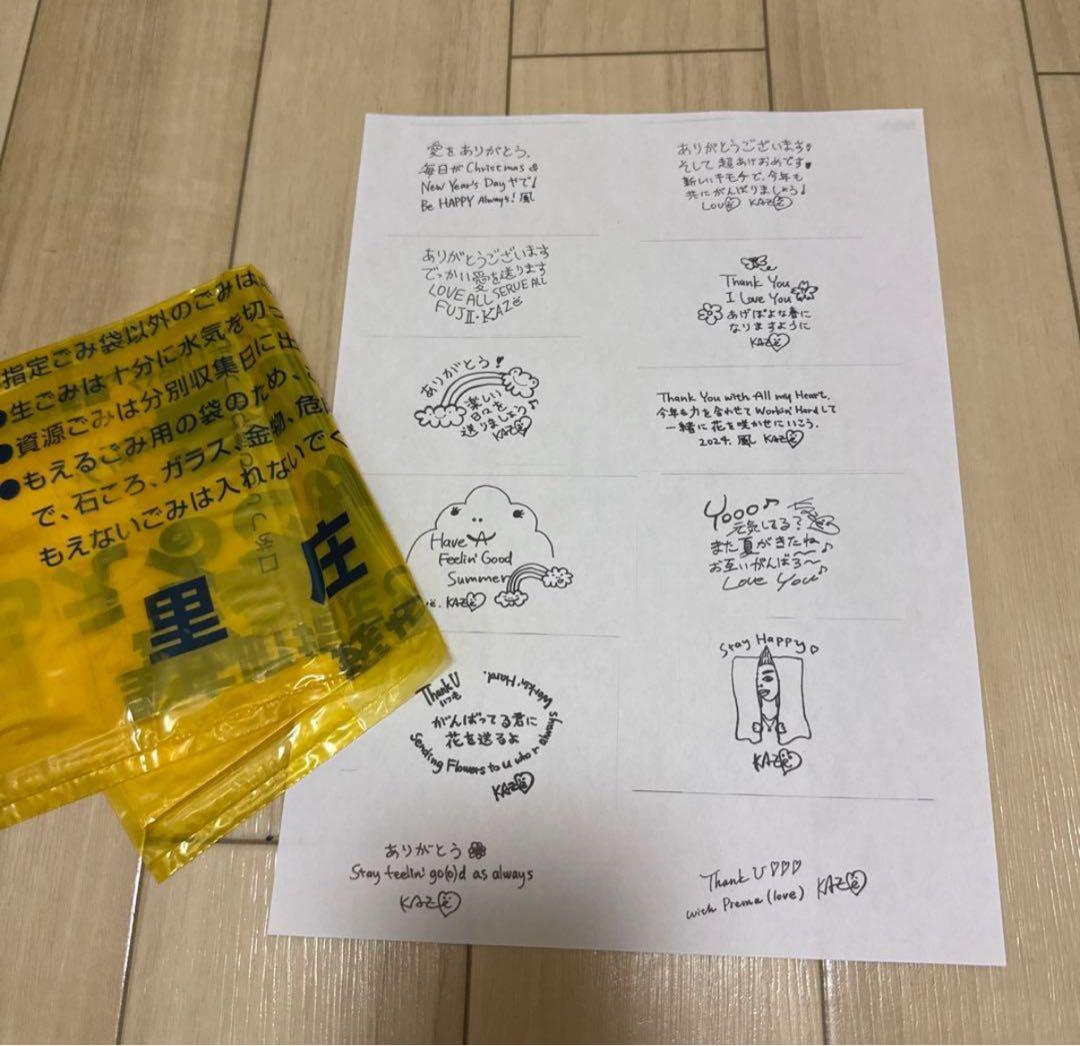 愛をありがとう。
毎日がChristmas &
New Year's Day やで!
Be HAPPY Always! 風
ありがとうございます♥
そして超あけおめです♥
新しいキモチで、今年も
共にがんばりましょう!
LOVE KAZE
ありがとうございます
でっかい愛を送ります
LOVE ALL SERVE ALL
FUJII・KAZE
Thank You
I Love You
あげぱよな春に
なりますように
KAZE
ありがとう!
楽しい
日々を
送りましょう♪
KAZE
Thank You with All my Heart.
今年も力を合わせて Workin' Hardして
一緒に花を咲かせにいこう。
2024. 風 KAZE
Have A
Feelin' Good
Summer
KAZE
Yooo♪
元気してる?
また夏がきたね
お互いがんばろ〜♪
Love You♪
Thank U
いつも
がんばってる君に
花を送るよ
Sending Flowers to u who r always
Workin' Hard.
KAZE
Stay Happy♡
KAZE
ありがとう
Stay feelin' go(o)d as always
KAZE
Thank U♡♡♡
with Prema (love) KAZE
指定ごみ袋以外のごみは
●生ごみは十分に水気を切
●資源ごみは分別収集日に出
●もえるごみ用の袋のため、
で、石ころ、ガラス、金物、危
もえないごみは入れないでく
里庄